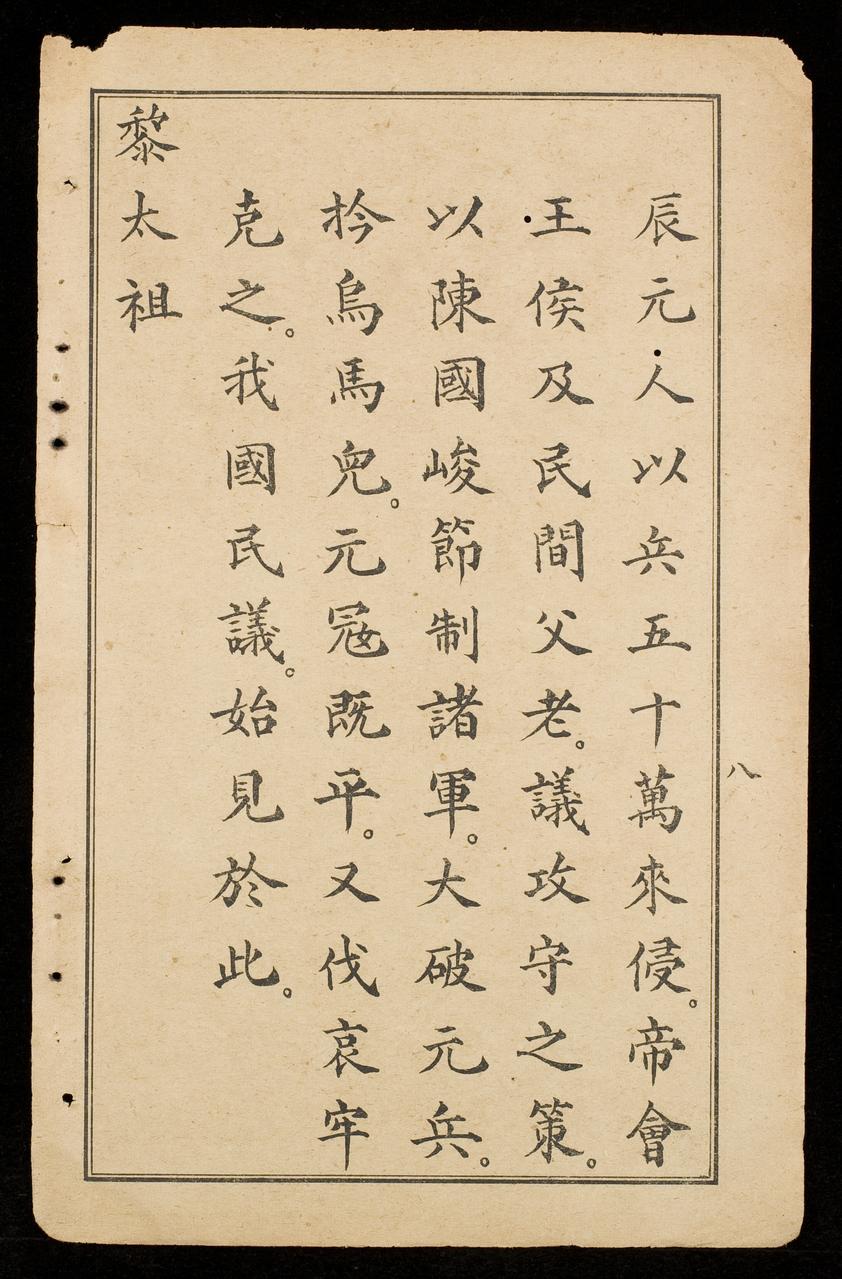 辰元人以兵五十萬來侵。帝會
王侯及民間父老。議攻守之策。
以陳國峻節制諸軍。大破元兵。
扲烏馬兒。元冦既平。又伐哀牢
克之。我國民議。始見於此。
黎太祖
八